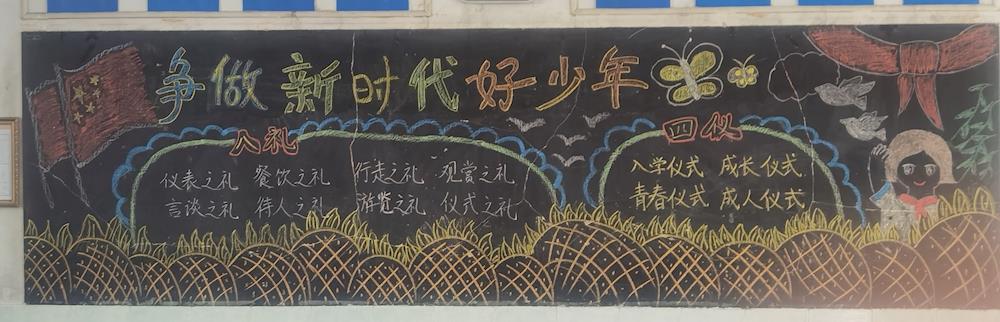 争做新时代好少年
八礼
仪表之礼 餐饮之礼 行走之礼 观赏之礼
言谈之礼 待人之礼 游览之礼 仪式之礼
四仪
入学仪式 成长仪式
青春仪式 成人仪式